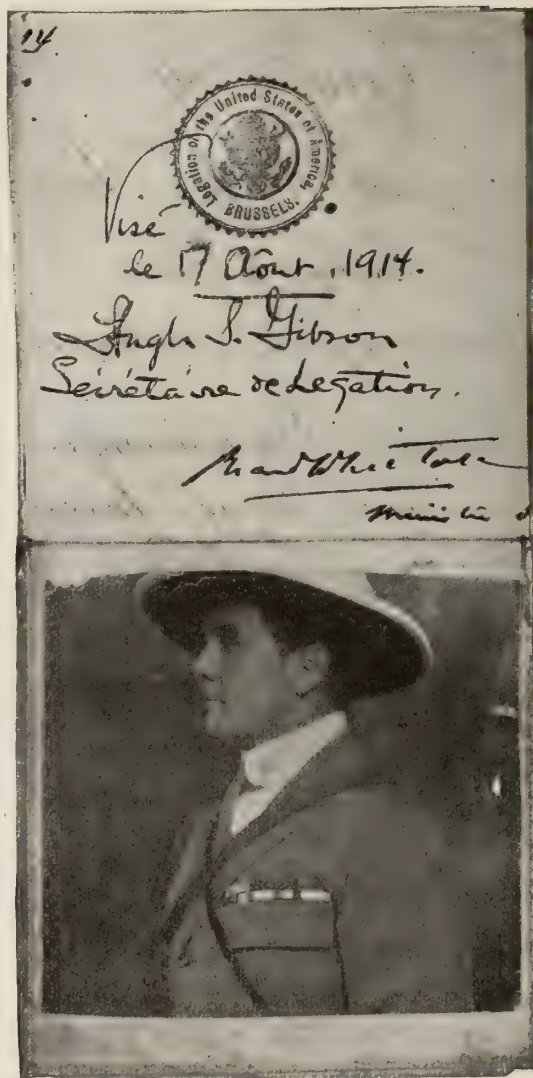 14
Legation of the United States of America,
BRUSSELS.
Visé
le 17 Août, 1914.
Hugh S. Gibson
Secrétaire de Legation.
Brand Whitlock